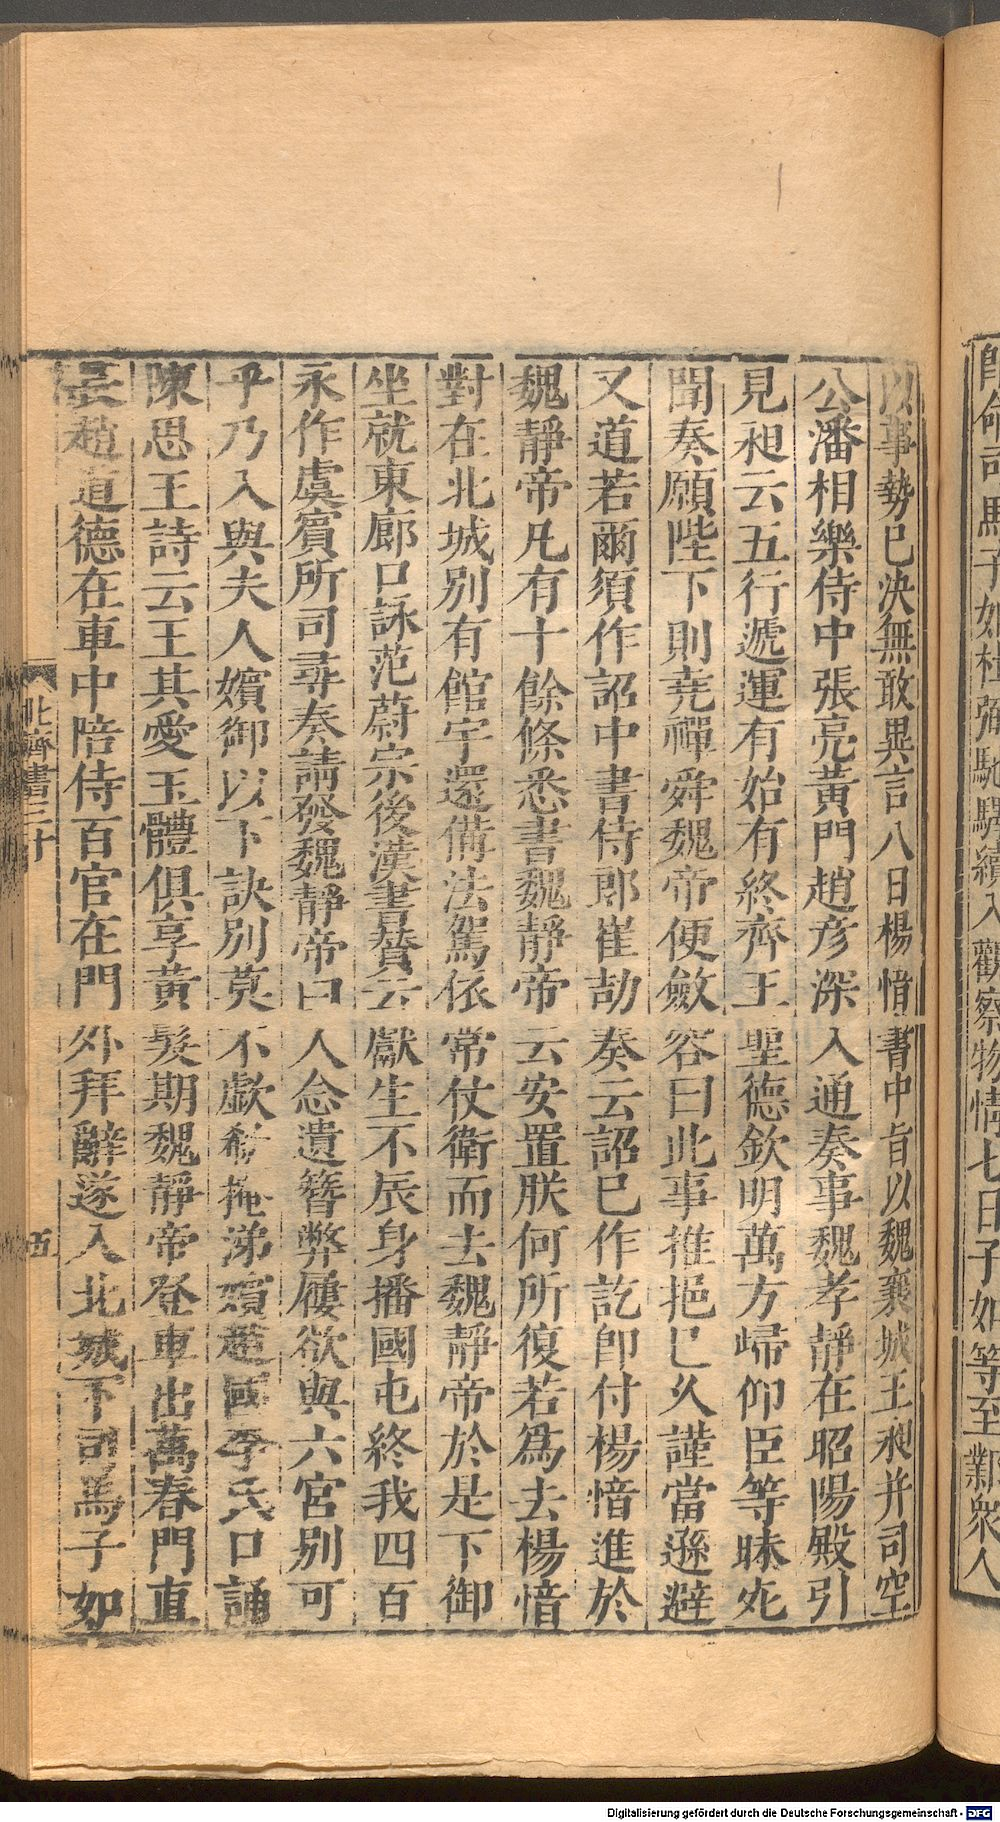 即命司馬子如杜弼馳驛續入觀察物情七日子如等至鄴衆人
以事勢已決無敢異言八日楊愔書中旨以魏襄城王昶并司空
公潘相樂侍中張亮黃門趙彦深入通奏事魏孝靜在昭陽殿引
見昶云五行遞運有始有終齊王聖德欽明萬方歸仰臣等昧死
聞奏願陛下則堯禪舜魏帝便斂容曰此事推挹已久謹當遜避
又道若爾須作詔中書侍郎崔劼奏云詔已作訖卽付楊愔進於
魏靜帝凡有十餘條悉書魏靜帝云安置朕何所復若爲去楊愔
對在北城别有館宇還備法駕依常仗衛而去魏靜帝於是下御
坐就東廊口詠范蔚宗後漢書贊云獻生不辰身播國屯終我四百
永作虞賓所司尋奏請發魏靜帝曰人念遺簪弊屨欲與六宮别可
乎乃入與夫人嬪御以下訣别莫不歔欷掩涕嬪趙國李氏口誦
陳思王詩云王其愛玉體俱享黃髮期魏靜帝登車出萬春門直
長趙道德在車中陪侍百官在門外拜辭遂入北城下司馬子如
北齊書三十 伍
Digitalisierung gefördert durch die Deutsche Forschungsgemeinschaft - DFG